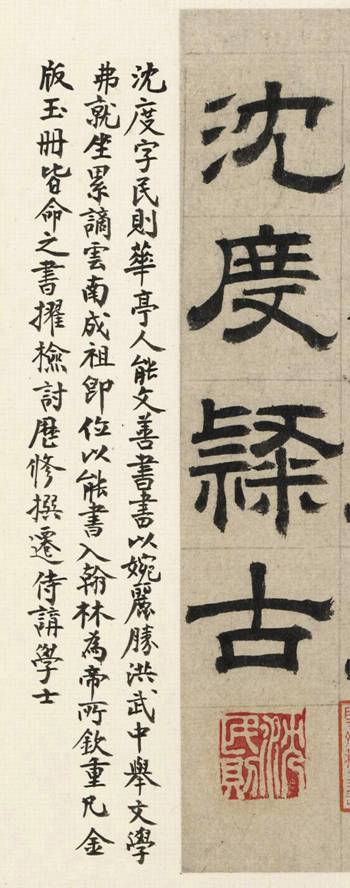 沈度隸古
沈民則
沈度字民則華亭人能文善書書以婉麗勝洪武中舉文學
弗就坐累謫雲南成祖即位以能書入翰林為帝所欽重凡金
版玉冊皆命之書擢檢討歷修撰遷侍講學士